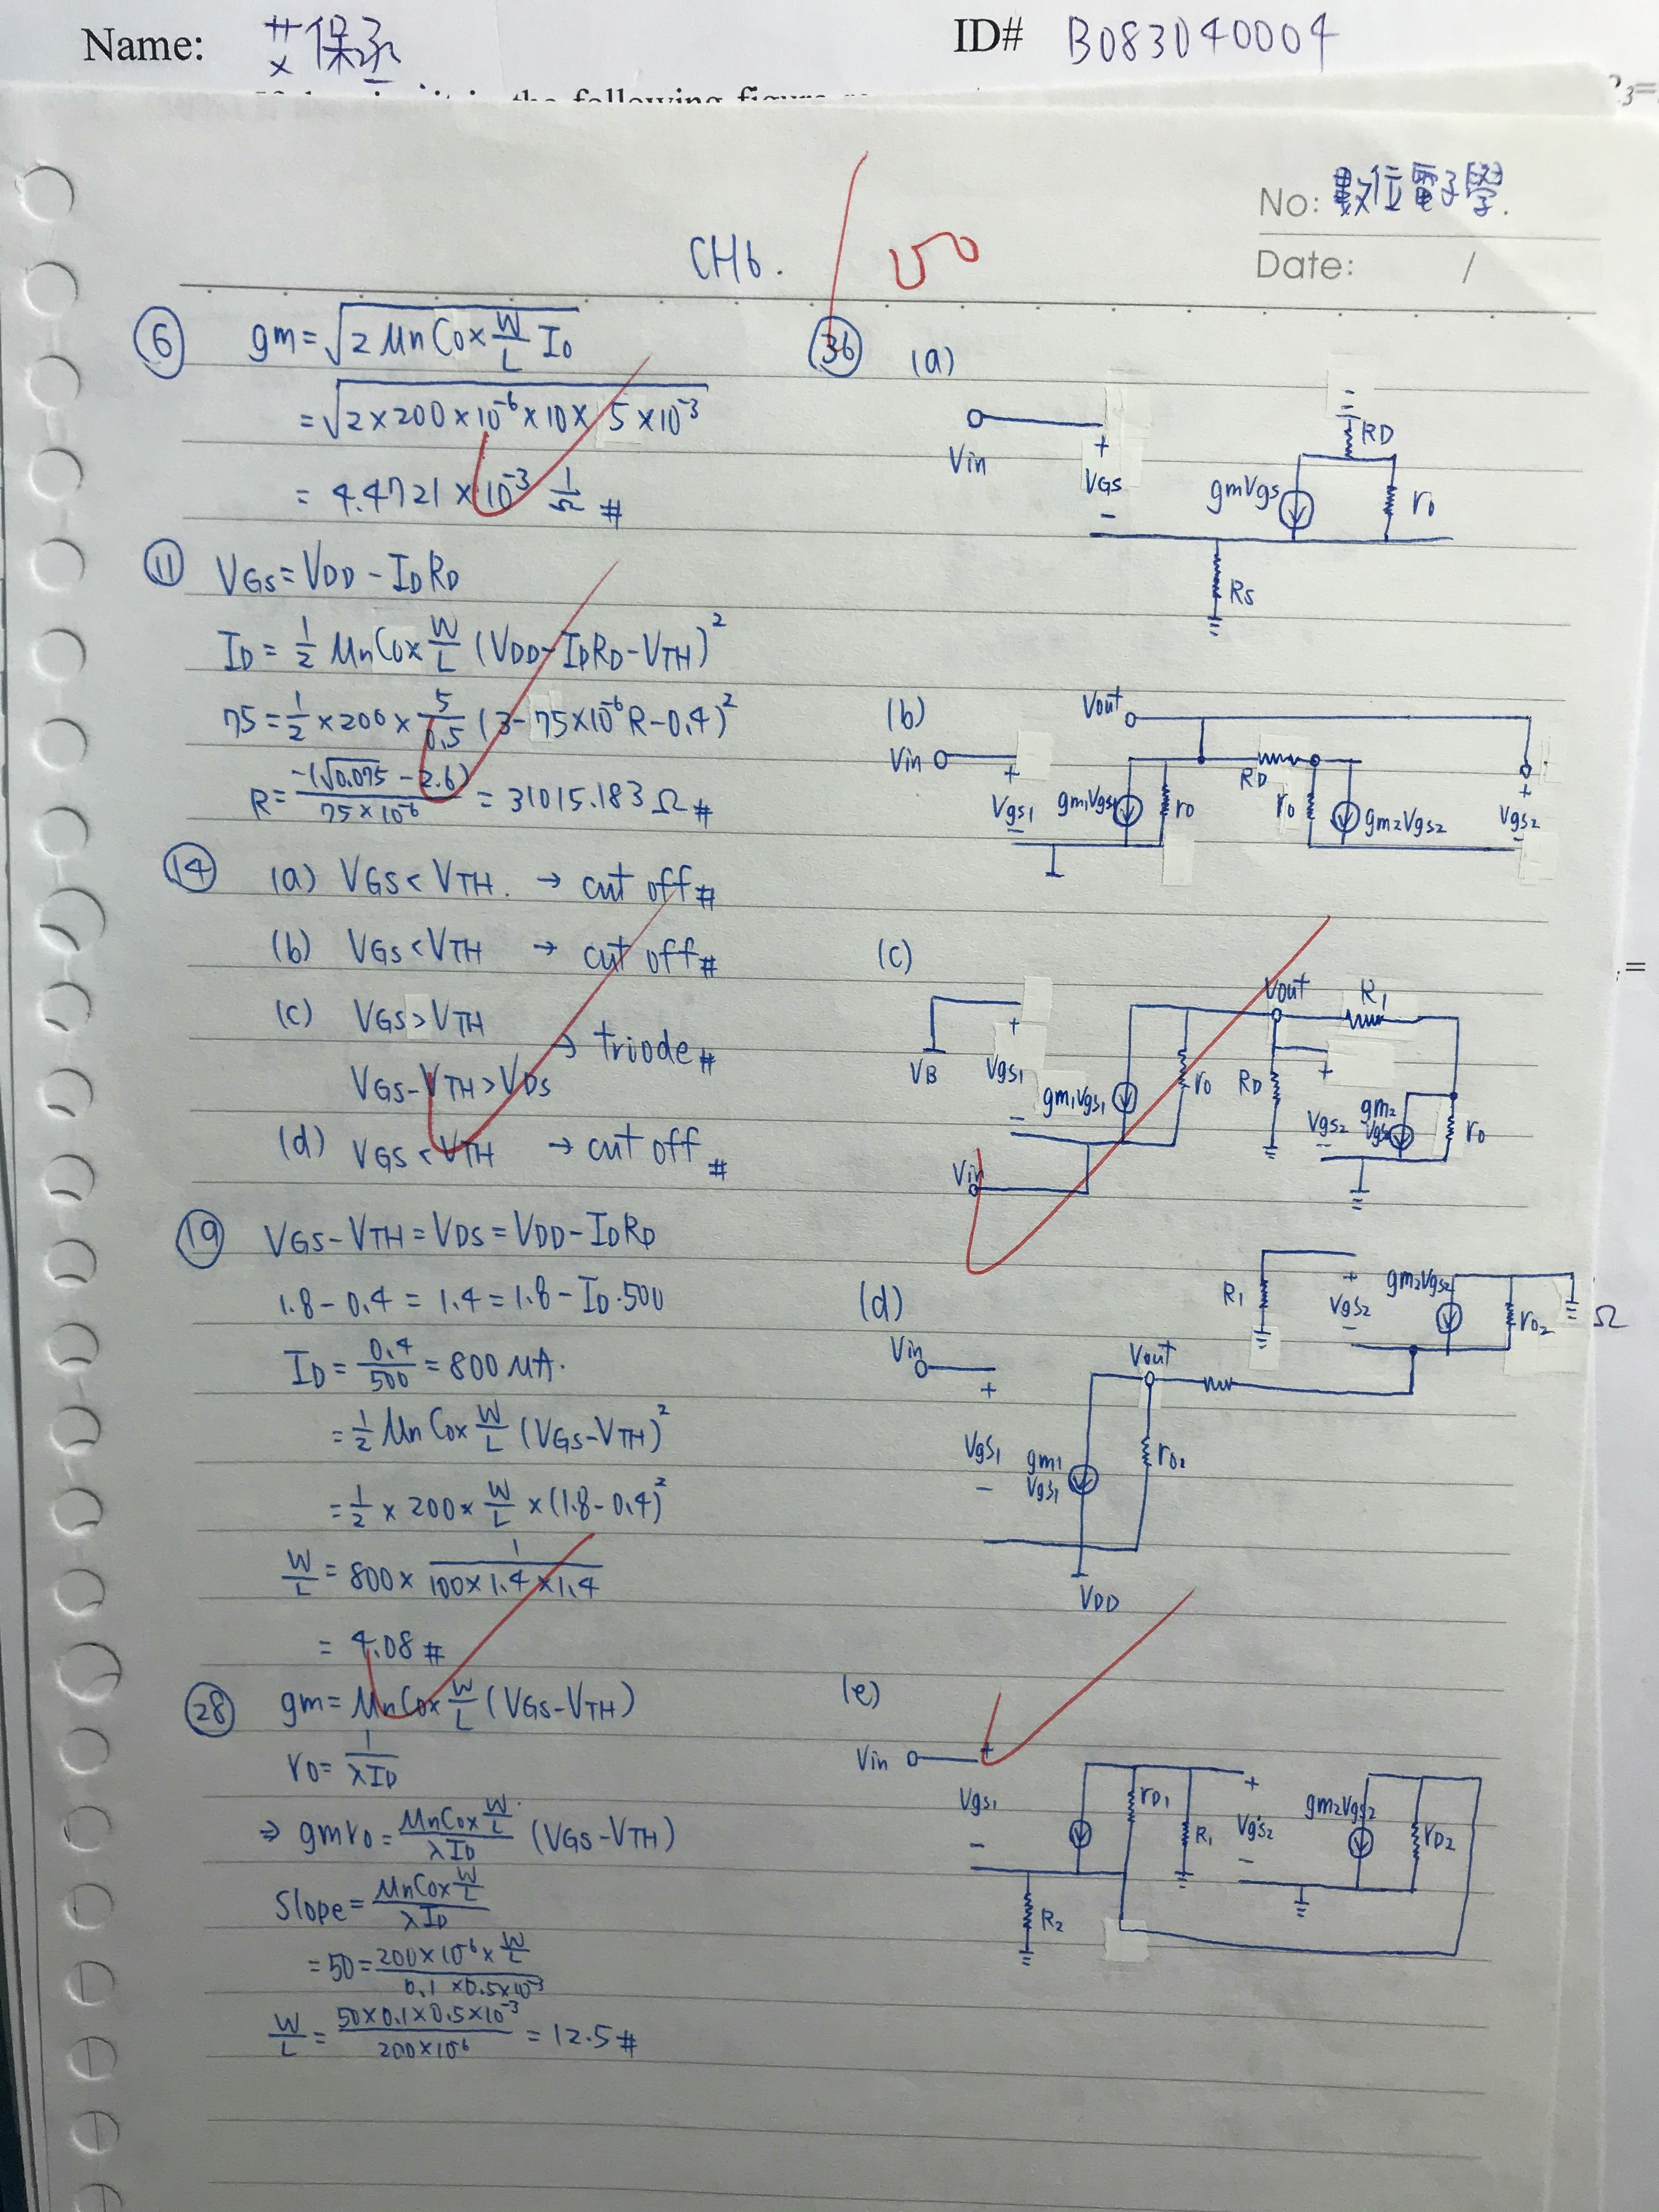 Name: 艾保丞 ID# B083040004
No: 數位電子學.
Date: /
CH6. 50
⑥ gm=√(2 μnCox W/L ID)
=√(2×200×10⁻⁶×10×5×10⁻³)
= 4.4721×10⁻³ 1/Ω #
⑪ VGS=VDD-IDRD
ID = 1/2 μnCox W/L (VDD-IDRD-VTH)²
75=1/2×200×5/0.5 (3-75×10⁻⁶R-0.4)²
R= -(√0.075 -2.6)/75×10⁻⁶ = 31015.183Ω #
⑭ (a) VGS<VTH. → cut off #
(b) VGS<VTH → cut off #
(c) VGS>VTH
→ triode #
VGS-VTH>VDS
(d) VGS<VTH → cut off #
⑲ VGS-VTH=VDS=VDD-IDRD
1.8-0.4=1.4=1.8-ID·500
ID= 0.4/500 = 800 μA.
=1/2 μnCox W/L (VGS-VTH)²
=1/2 × 200× W/L ×(1.8-0.4)²
W/L = 800× 1/100×1.4×1.4
= 4.08 #
㉘ gm= μnCox W/L (VGS-VTH)
ro= 1/λID
⇒ gmro= μnCox W/L /λID (VGS-VTH)
Slope= μnCox W/L /λID
=50= 200×10⁻⁶× W/L /0.1×0.5×10⁻³
W/L = 50×0.1×0.5×10⁻³/200×10⁻⁶ = 12.5 #
㊱ (a)
RD
Vin + VGS - gmVgs ro
RS
(b) Vout
Vin + Vgs1 - gm1Vgs1 ro RD ro gm2Vgs2 + Vgs2 -
(c)
Vout R1
VB + Vgs1 - gm1Vgs1 ro RD + Vgs2 - gm2 Vgs2 ro
Vin
(d)
R1 + Vgs2 - gm2Vgs2 ro2 Ω
Vin + Vout
Vgs1 - gm1 Vgs1 ro2
VDD
(e)
Vin +
Vgs1 - rD1 R1 + Vgs2 - gm2Vgs2 rD2
R2